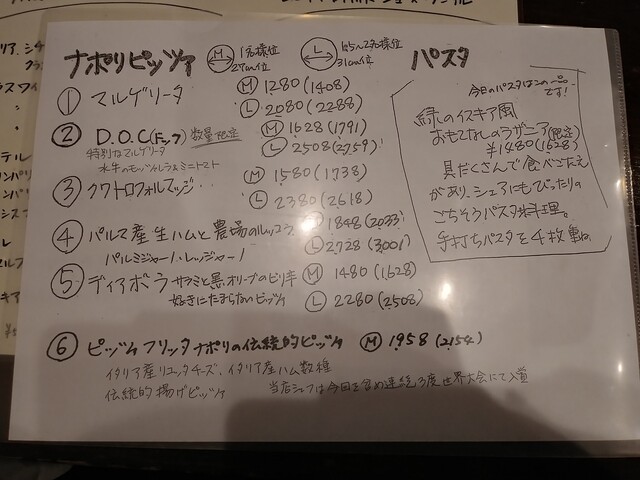 ナポリピッツァ
M 1名様位 27cm位
L 1.5~2名様位 31cm位
① マルゲリータ
M 1280(1408)
L 2080(2288)
② D.O.C(ドック) 数量限定
特別なマルゲリータ
水牛のモッツァレラ&ミニトマト
M 1628(1791)
L 2508(2759)
③ クワトロフォルマッジ・・
M 1580(1738)
L 2380(2618)
④ パルマ産生ハムと農場のルッコラ
パルミジャーノ・レッジャーノ
M 1848(2033)
L 2728(3001)
⑤ ディアボラ サラミと黒オリーブのピリ辛
好きにたまらないピッツァ
M 1480(1628)
L 2280(2508)
⑥ ピッツァフリッタ ナポリの伝統的ピッツァ M 1958(2154)
イタリア産リコッタチーズ、イタリア産ハム数種
伝統的揚げピッツァ 当店シェフは今回を含め連続3度世界大会にて入賞
パスタ
今日のパスタはこの
です!
緑のイスキア風
おもてなしのラザニア(限定)
¥1480(1628)
具だくさんで食べごたえ
があり、シェアにもぴったりの
ごちそうパスタ料理。
手打ちパスタを4枚重ね